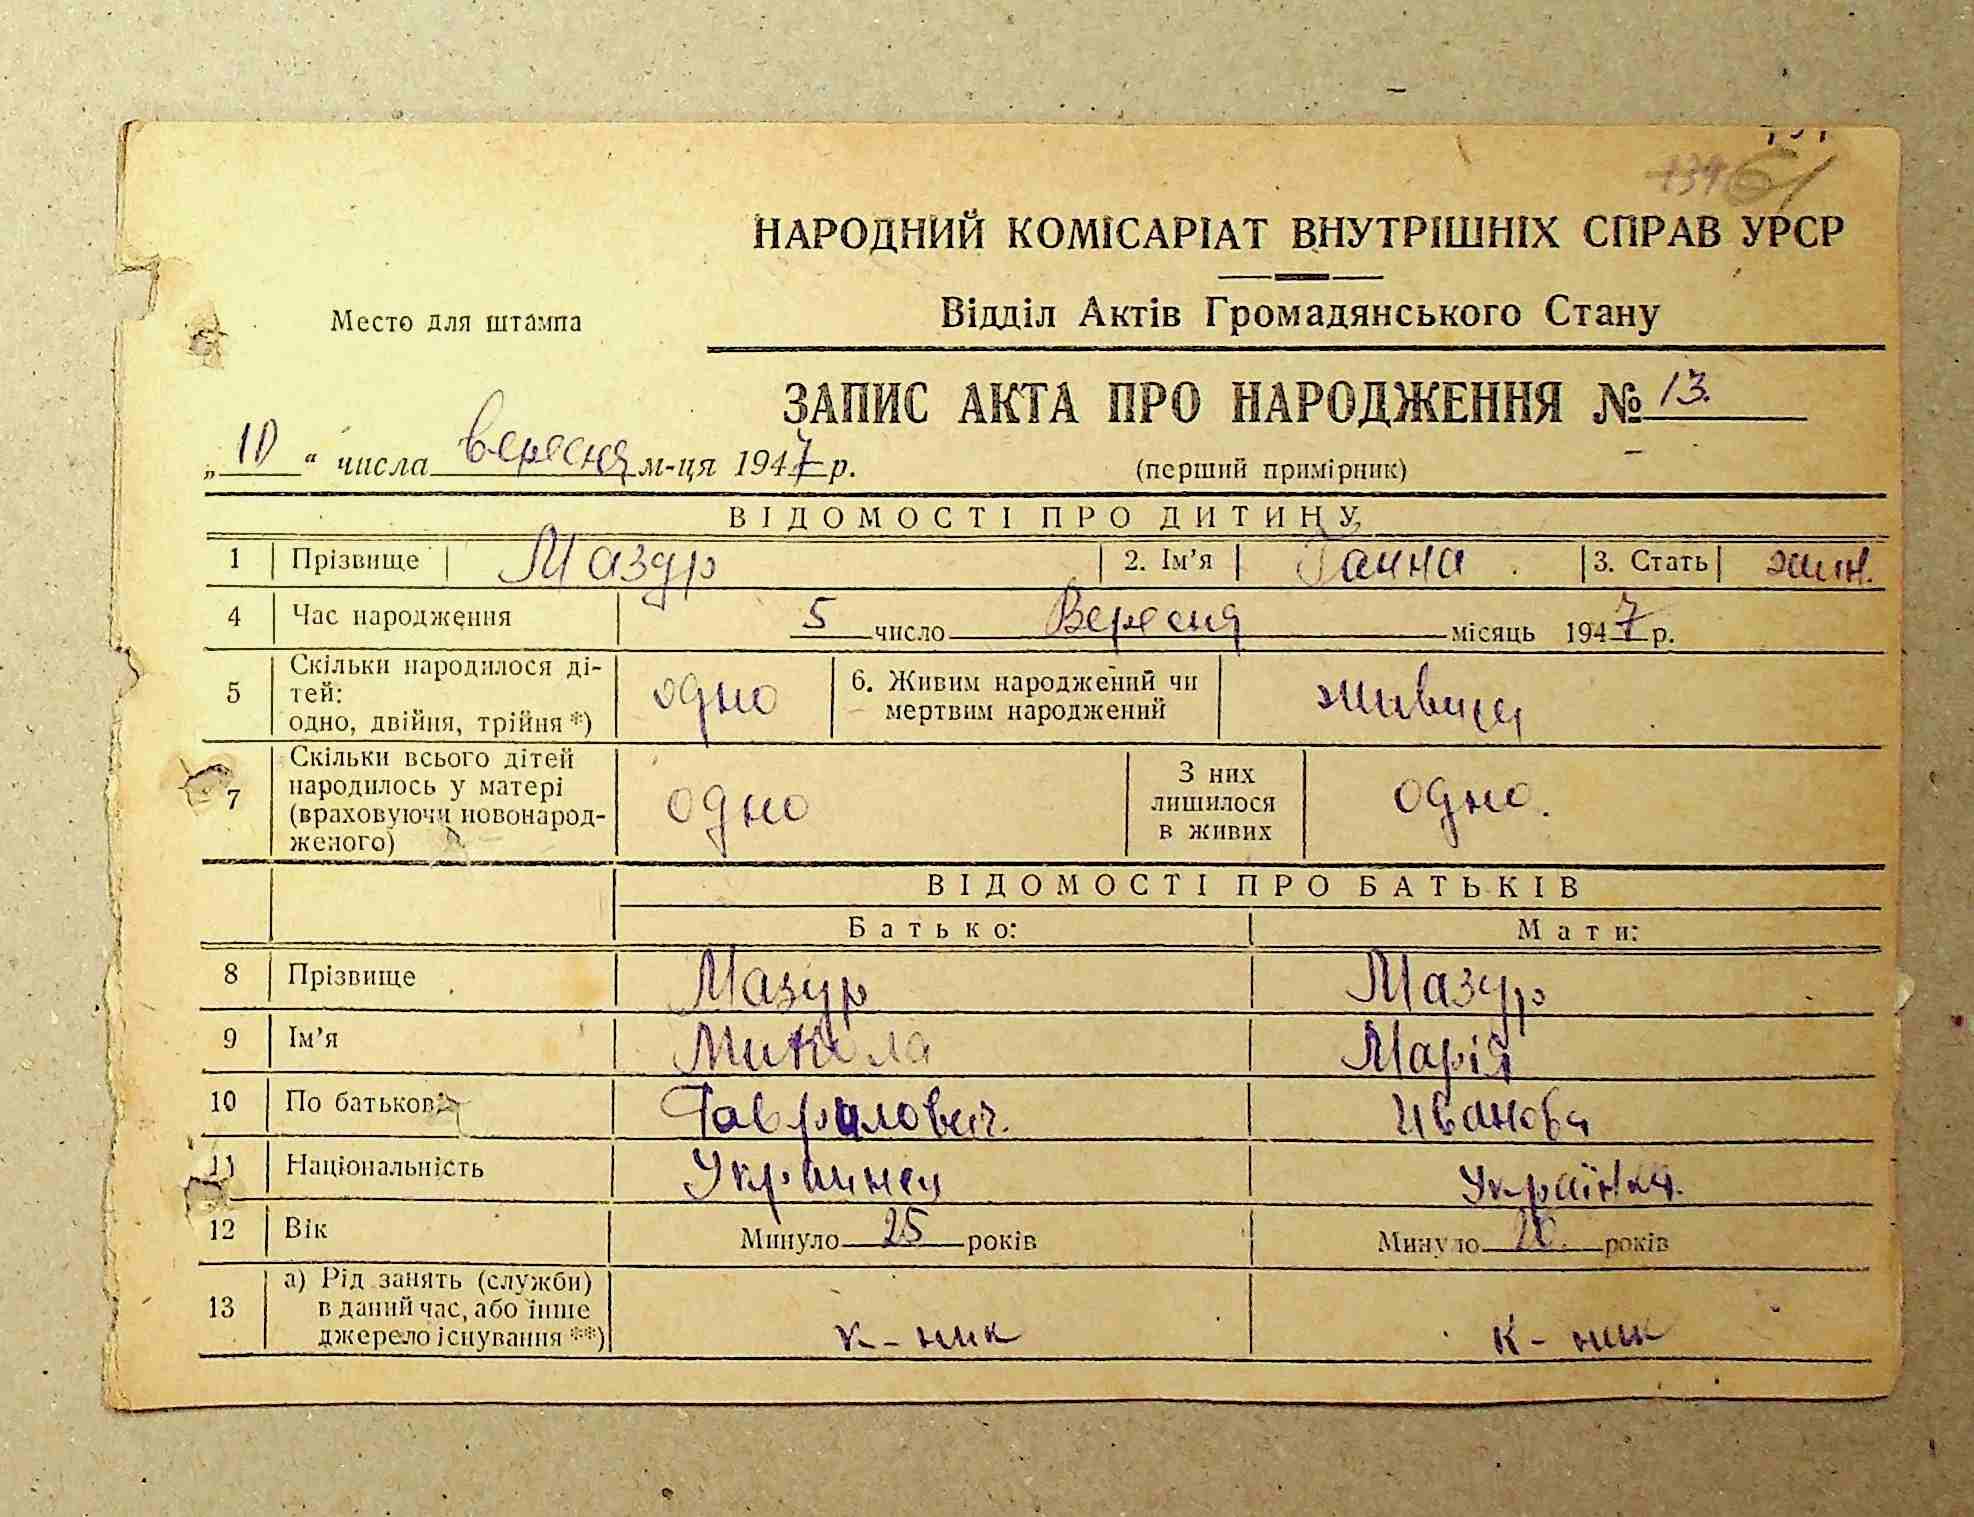 61
НАРОДНИЙ КОМІСАРІАТ ВНУТРІШНІХ СПРАВ УРСР
Место для штампа
Відділ Актів Громадянського Стану
ЗАПИС АКТА ПРО НАРОДЖЕННЯ № 13.
„10“ числа вересня м-ця 1947 р.
(перший примірник)
ВІДОМОСТІ ПРО ДИТИНУ
1 Прізвище Мазур 2. Ім'я Ганна 3. Стать жин.
4 Час народження 5 число Вересня місяць 1947 р.
5 Скільки народилося ді-
тей:
одно, двійня, трійня *) одно 6. Живим народжений чи
мертвим народжений живим
7 Скільки всього дітей
народилось у матері
(враховуючи новонарод-
женого) одно З них
лишилося
в живих одно.
ВІДОМОСТІ ПРО БАТЬКІВ
Батько: Мати:
8 Прізвище Мазур Мазур
9 Ім'я Микола Марія
10 По батькові Гаврилович. Иванова
11 Національність Украинец Українка.
12 Вік Минуло 25 років Минуло 20. років
13 а) Рід занять (служби)
в даний час, або інше
джерело існування **) к-ник к-ник